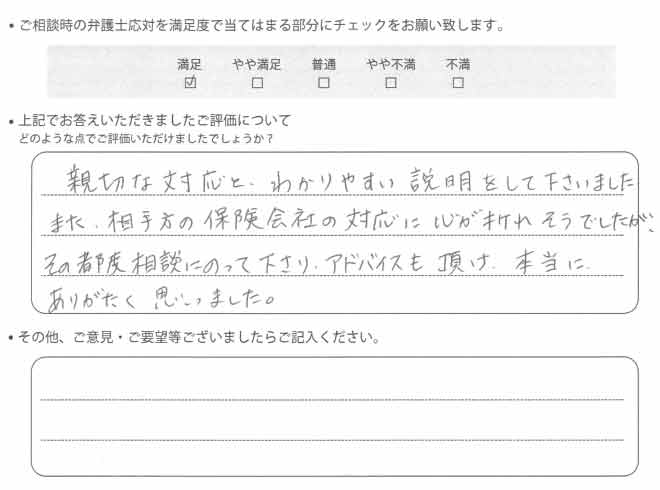 • ご相談時の弁護士応対を満足度で当てはまる部分にチェックをお願い致します。
満足 やや満足 普通 やや不満 不満
☑ ☐ ☐ ☐ ☐
• 上記でお答えいただきましたご評価について
どのような点でご評価いただけましたでしょうか？
親切な対応と、わかりやすい説明をして下さいました
また、相手方の保険会社の対応に心が折れそうでしたが、
その都度相談にのって下さり、アドバイスも頂け、本当に
ありがたく思いました。
• その他、ご意見・ご要望等ございましたらご記入ください。